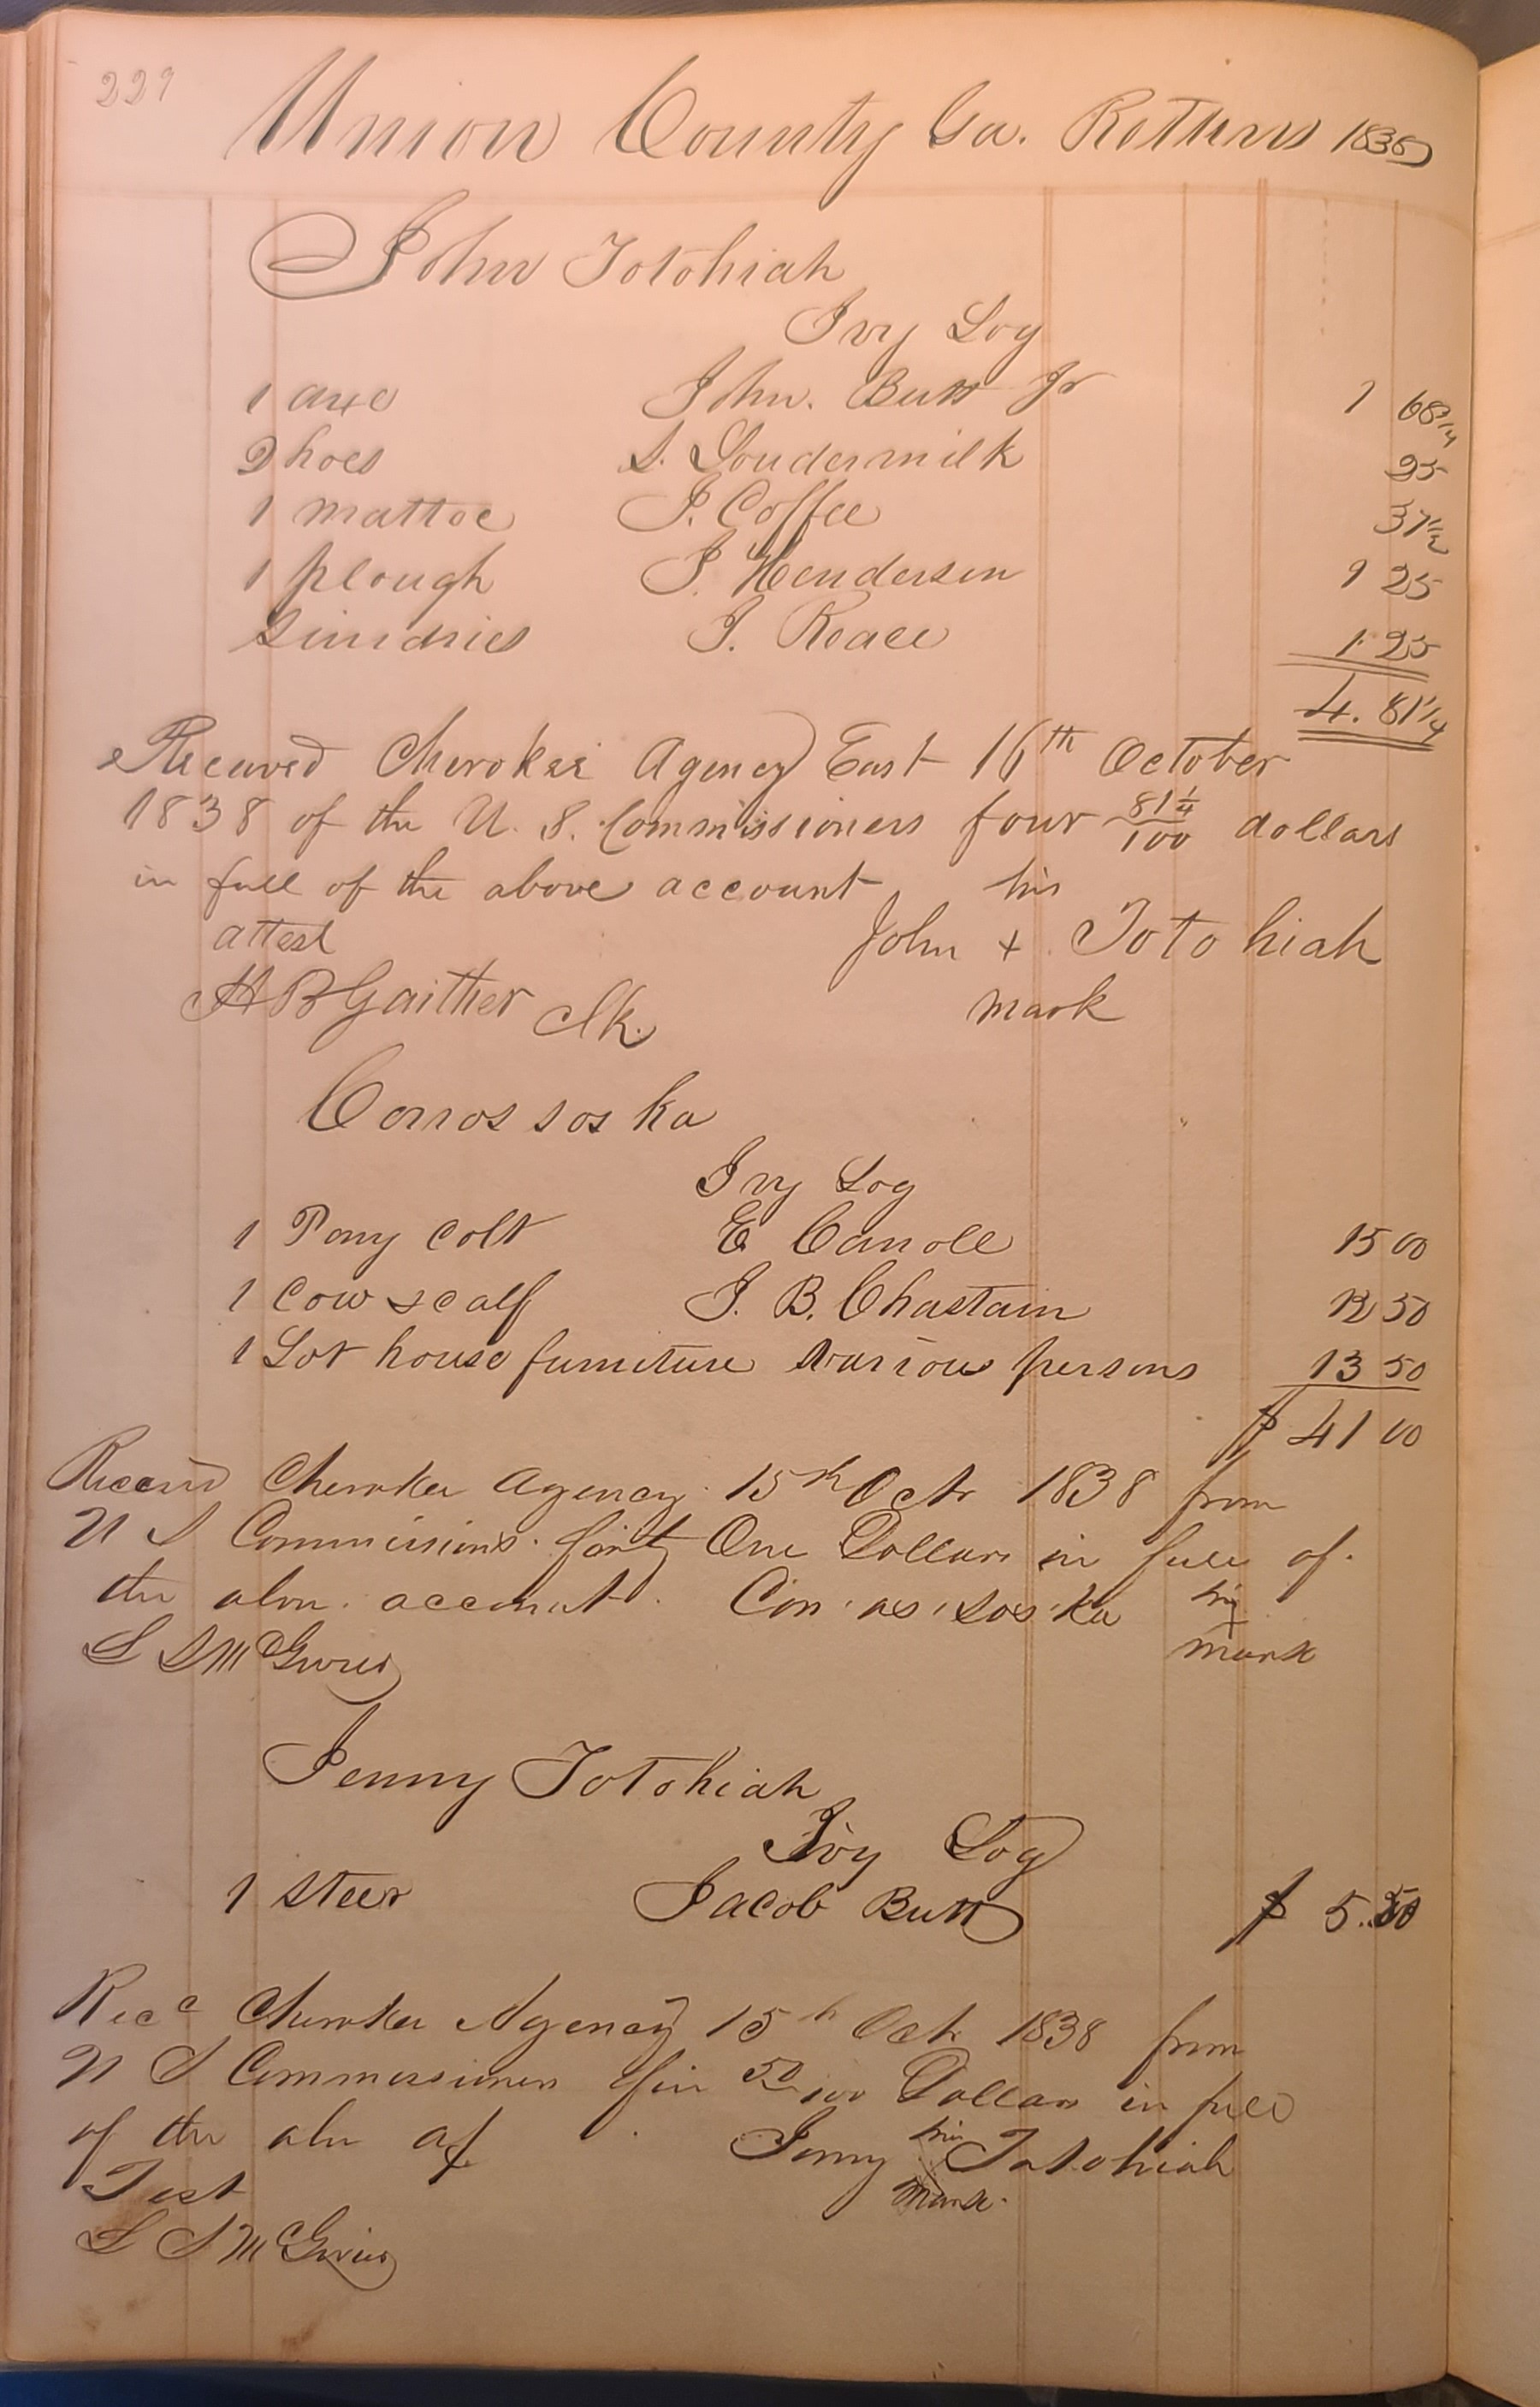 229
Union County Ga. Returns 1838
John Totohiah
Ivy Log
1 axe John. Butt Jr 1 68 3/4
2 hoes S. Loudermilk 25
1 mattoc J. Coffee 37 1/2
1 plough J. Henderson 1 25
Sundries J. Reace 1 25
4. 81 1/4
Received Cherokee Agency East 16th October
1838 of the U. S. Commissioners four 81 1/4/100 dollars
in full of the above account his
attest John + Totohiah
H B Gaither Clk. mark
Conos sos ka
Ivy Log
1 Pony Colt E Canole 15 00
1 Cow & calf J. B. Chastain 12 50
1 Lot house furniture various persons 13 50
$ 41 00
Cherokee Agency 15th Oct 1838 from
U S Commissioners forty One Dollars in full of
the above account. Con as sos ka his
mark
Jenny Totohiah
Ivy Log
1 Steer Jacob Butt $ 5..50
Recd Cherokee Agency 15th Oct 1838 from
U S Commissioners five 50/100 Dollars in full
of the abv a/c Jenny his x Totohiah
Test mark